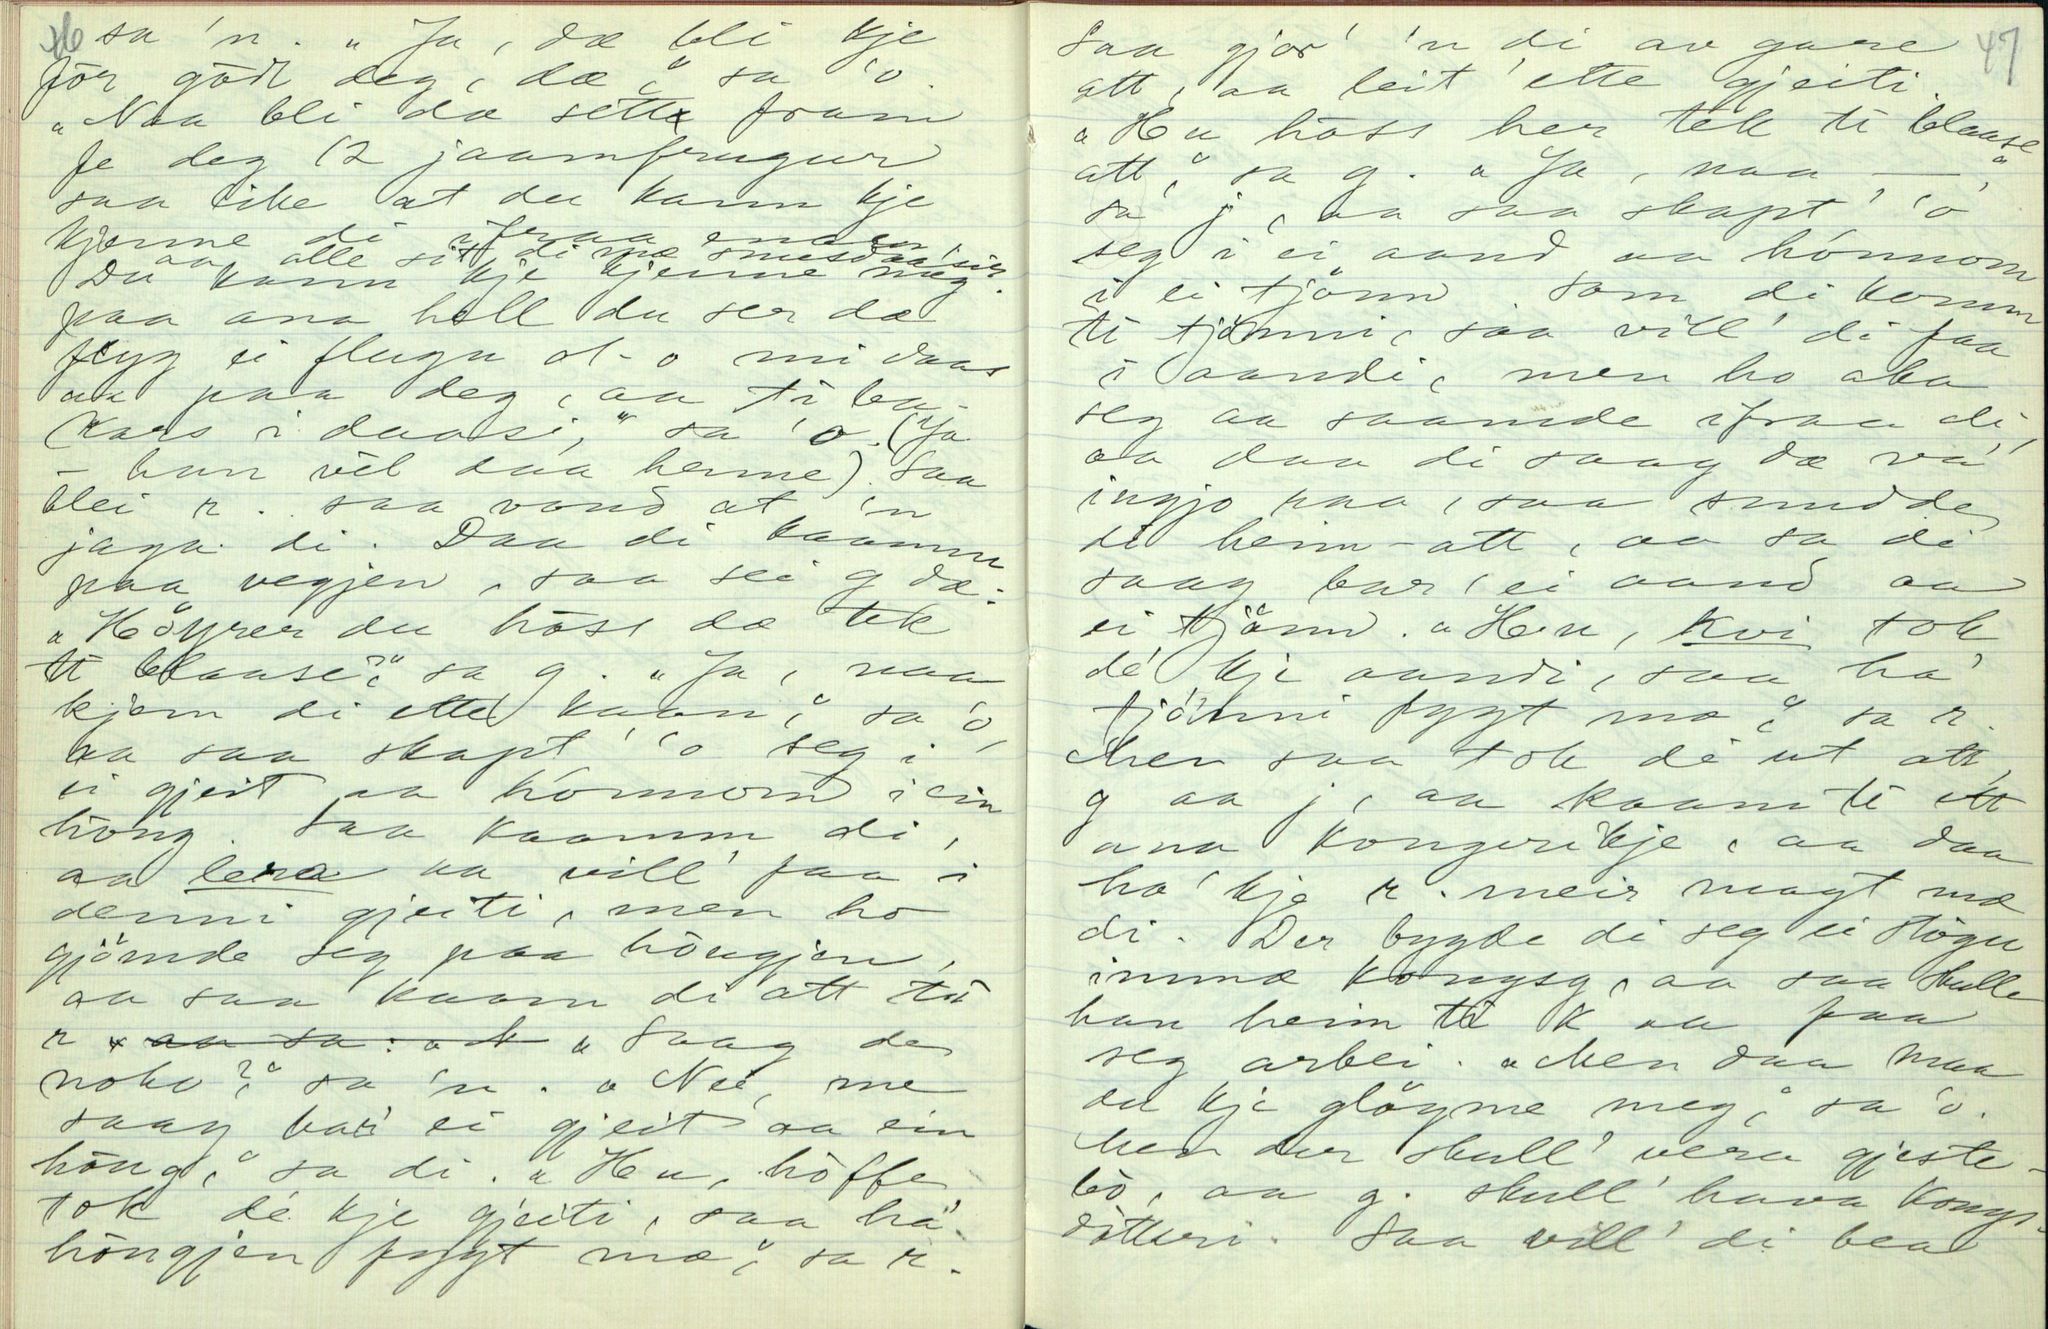 46
sa 'n. "Ja, dæ bli kje
før gött deg, dæ," sa 'o.
"Naa bli dæ sett fram
fe deg 12 jaamfrugur
saa like at du kann kje
kjenne di ifraa
aa alle sit di mæ
Du kann kje kjenne meg
paa ana hell du ser dæ
flyg ei flugu ot-o mi daas
aa paa deg, aa ti ba-
kars i daasi," sa 'o. (Ja
- hun vil daa henne). Saa
blei r. saa vond at 'n
jaga di. Daa di kaamm
paa vegjen, saa sei g dæ:
"Höyrer du höss dæ tek
ti blaase?" sa g. "Ja, naa
kjem di ette kaan," sa 'o,
aa saa skapt' 'o seg i
ei gjeit aa hónnom i ein
höug. Saa kaamm di,
aa lera aa vill' faa i
denni gjeiti, men ho
gjömde seg paa höugjen,
aa saa kaam di att ti
r "Saag de
noko?" sa 'n. "Nei, me
saag bar' ei gjeit aa ein
höug," sa di. "Hu, höffe
tok dé kje gjeiti, saa ha'
höugjen fygt mæ," sa r.
47
Saa gjor' 'n di av gare
att, aa leit ette gjeiti.
"Hu höss her tek ti blaase
att," sa g. "Ja, naa —,"
sa j, aa saa skapt' 'o
seg i ei aand, aa hónnom
i ei tjönn. Som di komm
ti tjönni, saa vill' di faa
i aandi, men ho aka
seg aa saamde ifraa di,
aa daa di saag dæ va'
ingjo raa, saa snudde
di heim-att, aa sa di
saag bar' ei aand aa
ei tjönn. "Hu, kvi tok
dé kje aandi, saa ha'
tjönni fygt mæ," sa r.
Men saa tok dé ut att,
g aa j, aa kaam ti ett
ana kongerikje, aa daa
ha' kje r. meir magt mæ
di. Der bygde di seg ei stögu
immæ kongsg, aa saa skulle
han heim ti K aa faa
seg arbei. "Men daa maa
du kje glöyme meg," sa 'o.
Men der skull' vera gjeste-
bö, aa g. skull' hava kongs-
dotteri. Saa vill' di bea